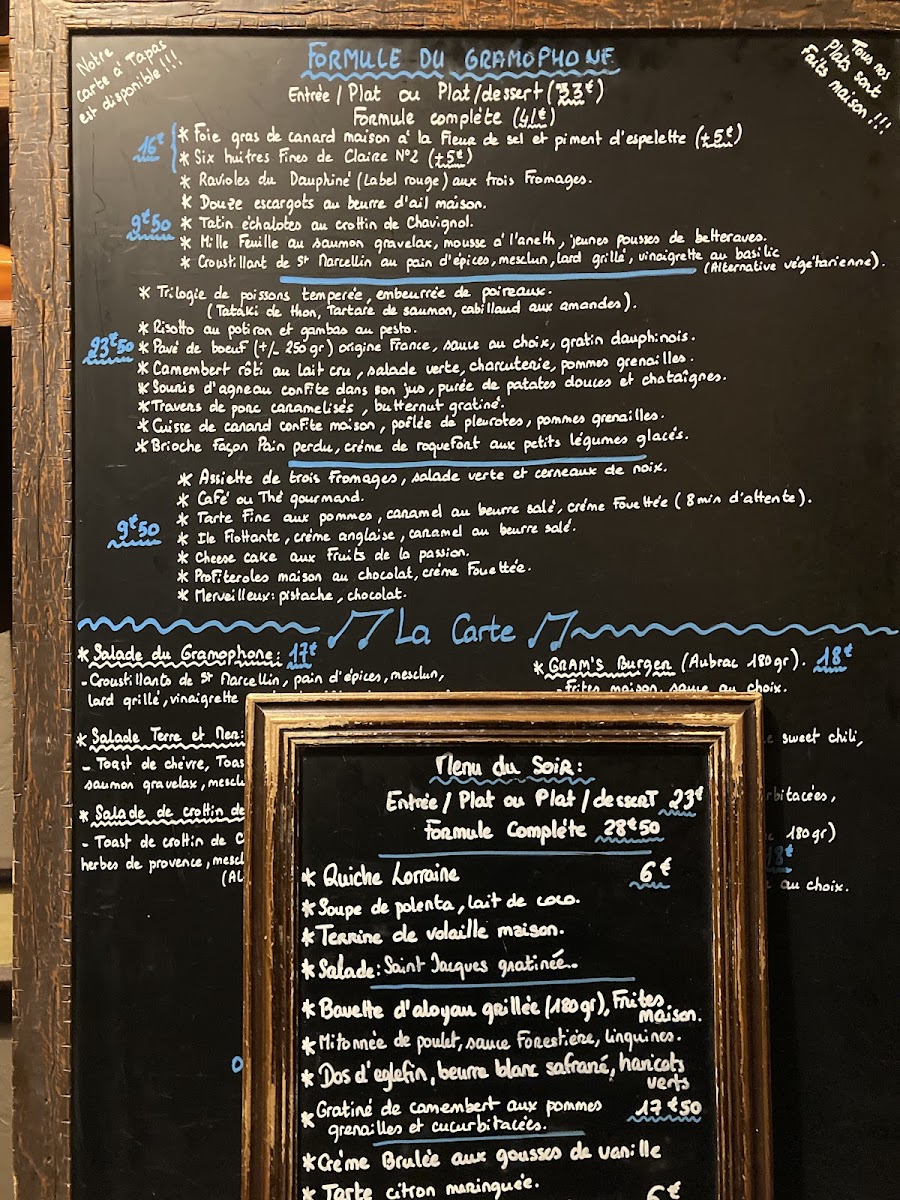 Notre
carte à Tapas
est disponible !!!
Tous nos
Plats sont
Faits maison !!!
FORMULE DU GRAMOPHONE
Entrée / Plat ou Plat/dessert (33€)
Formule complète (41€)
16€
* Foie gras de canard maison à la Fleur de sel et piment d'espelette (+5€)
* Six huîtres Fines de Claire N°2 (+5€)
* Ravioles du Dauphiné (Label rouge) aux trois Fromages.
* Douze escargots au beurre d'ail maison.
9€50
* Tatin échalotes au crottin de Chavignol.
* Mille Feuille au saumon gravelax, mousse à l'aneth, jeunes pousses de betteraves.
* Croustillant de St Marcellin au pain d'épices, mesclun, lard grillé, vinaigrette au basilic
(Alternative végétarienne).
* Trilogie de poissons temperée, embeurrée de poireaux.
(Tataki de thon, Tartare de saumon, cabillaud aux amandes).
* Risotto au potiron et gambas au pesto.
23€50
* Pavé de boeuf (+/- 250gr) origine France, sauce au choix, gratin dauphinois.
* Camembert rôti au lait cru, salade verte, charcuterie, pommes grenailles.
* Souris d'agneau confite dans son jus, purée de patates douces et chataîgnes.
* Travers de porc caramelisés, butternut gratiné.
* Cuisse de canard confite maison, poêlée de pleurotes, pommes grenailles.
* Brioche Façon Pain perdu, crème de roquefort aux petits légumes glacés.
* Assiette de trois Fromages, salade verte et cerneaux de noix.
* Café ou Thé gourmand.
* Tarte Fine aux pommes, caramel au beurre salé, crème Fouettée (8min d'attente).
9€50
* Ile Flottante, crème anglaise, caramel au beurre salé.
* Cheese cake aux Fruits de la passion.
* Profiteroles maison au chocolat, crème Fouettée.
* Merveilleux: pistache, chocolat.
La Carte
* Salade du Gramophone: 17€
- Croustillants de St Marcellin, pain d'épices, mesclun,
lard grillé, vinaigrette
* Salade Terre et Mer:
- Toast de chèvre, Toas
saumon gravelax, mescl
* Salade de crottin de
- Toast de crottin de C
herbes de provence, mescl
(AL
* GRAM'S Burger (Aubrac 180gr). 18€
- Frites maison, sauce au choix.
sweet chili,
rbitacées,
180gr)
18€
au choix.
Menu du Soir:
Entrée / Plat ou Plat / dessert 23€
Formule Complète 28€50
* Quiche Lorraine 6€
* Soupe de polenta, lait de coco.
* Terrine de volaille maison.
* Salade: Saint Jacques gratinée.
* Bavette d'aloyau grillée (180gr), Frites
maison.
* Mitonnée de poulet, sauce Forestière, linguines.
* Dos d'eglefin, beurre blanc safrané, haricots
verts
* Gratiné de camembert aux pommes 17€50
grenailles et cucurbitacées.
* Crème Brulée aux gousses de vanille
* Tarte citron meringuée. 6€